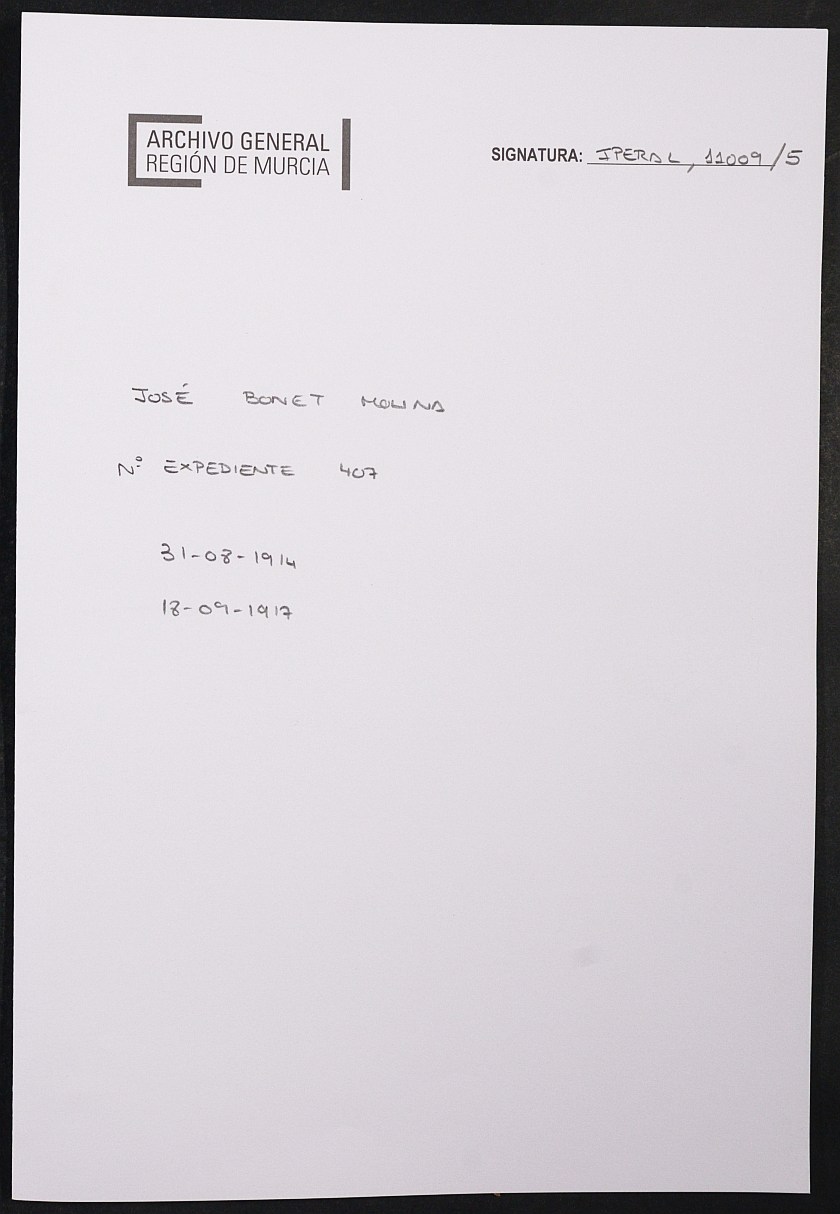 ARCHIVO GENERAL
REGIÓN DE MURCIA
SIGNATURA: IPERAL, 11009/5
JOSÉ BONET MOLINA
Nº EXPEDIENTE 407
31-08-1914
18-09-1917